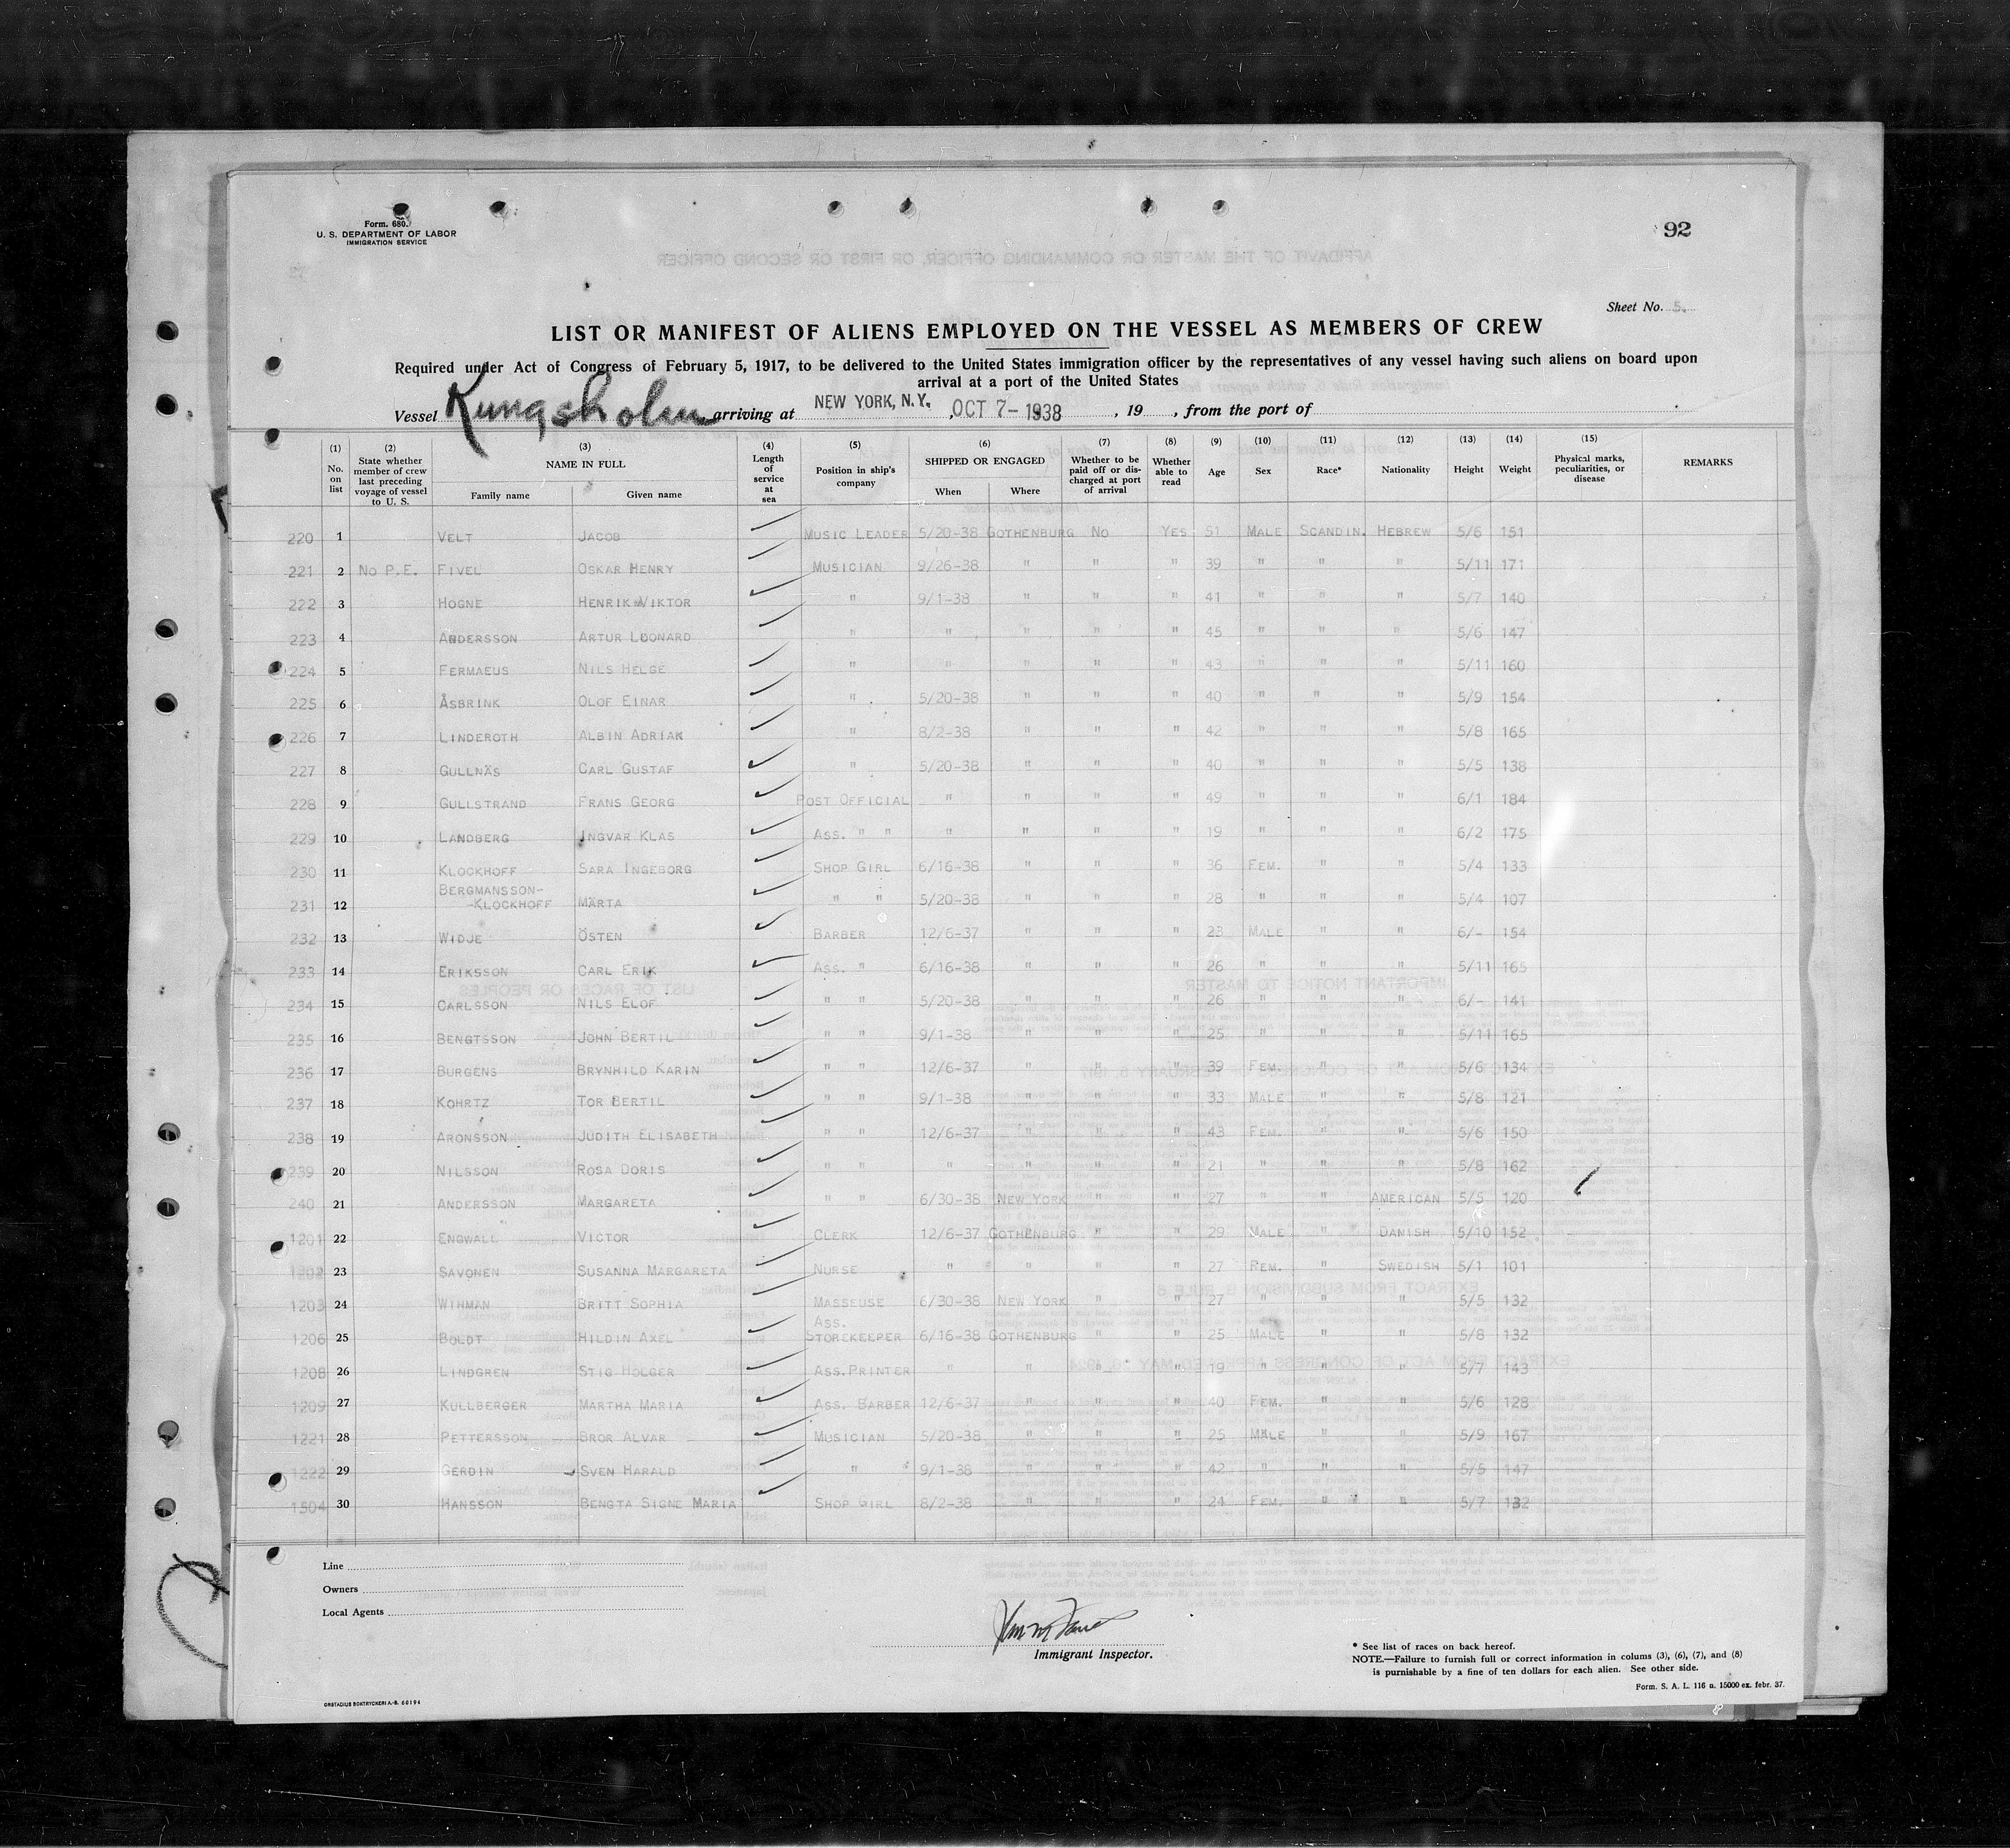 Form. 680.
U. S. DEPARTMENT OF LABOR
IMMIGRATION SERVICE
92
Sheet No. 5.
LIST OR MANIFEST OF ALIENS EMPLOYED ON THE VESSEL AS MEMBERS OF CREW
Required under Act of Congress of February 5, 1917, to be delivered to the United States immigration officer by the representatives of any vessel having such aliens on board upon
arrival at a port of the United States
Vessel Kungsholm arriving at NEW YORK, N.Y., OCT 7- 1938, 19, from the port of
(1) No. on list (2) State whether member of crew last preceding voyage of vessel to U. S. (3) NAME IN FULL Family name Given name (4) Length of service at sea (5) Position in ship's company (6) SHIPPED OR ENGAGED When Where (7) Whether to be paid off or discharged at port of arrival (8) Whether able to read (9) Age (10) Sex (11) Race* (12) Nationality (13) Height (14) Weight (15) Physical marks, peculiarities, or disease REMARKS
220 1 VELT JACOB MUSIC LEADER 5/20-38 GOTHENBURG NO YES 51 MALE SCANDIN. HEBREW 5/6 151
221 2 NO P.E. FIVEL OSKAR HENRY MUSICIAN 9/26-38 " " " 39 " " " 5/11 171
222 3 HOGNE HENRIK VIKTOR " 9/1-38 " " " 41 " " " 5/7 140
223 4 ANDERSSON ARTUR LEONARD " " " " " 45 " " " 5/6 147
224 5 FERMAEUS NILS HELGE " " " " " 43 " " " 5/11 160
225 6 ÅSBRINK OLOF EINAR " 5/20-38 " " " 40 " " " 5/9 154
226 7 LINDEROTH ALBIN ADRIAK " 8/2-38 " " " 42 " " " 5/8 165
227 8 GULLNÄS CARL GUSTAF " 5/20-38 " " " 40 " " " 5/5 138
228 9 GULLSTRAND FRANS GEORG POST OFFICIAL " " " " 49 " " " 6/1 184
229 10 LANDBERG INGVAR KLAS ASS. " " " " " " 19 " " " 6/2 175
230 11 KLOCKHOFF SARA INGEBORG SHOP GIRL 6/16-38 " " " 36 FEM. " " 5/4 133
231 12 BERGMANSSON-
-KLOCKHOFF MÄRTA " " 5/20-38 " " " 28 " " " 5/4 107
232 13 WIDJE ÖSTEN BARBER 12/6-37 " " " 23 MALE " " 6/- 154
233 14 ERIKSSON CARL ERIK ASS. " 6/16-38 " " " 26 " " " 5/11 165
234 15 CARLSSON NILS ELOF " " 5/20-38 " " " 26 " " " 6/- 141
235 16 BENGTSSON JOHN BERTIL " " 9/1-38 " " " 25 " " " 5/11 165
236 17 BURGENS BRYNHILD KARIN " " 12/6-37 " " " 39 FEM. " " 5/6 134
237 18 KOHRTZ TOR BERTIL " " 9/1-38 " " " 33 MALE " " 5/8 121
238 19 ARONSSON JUDITH ELISABETH " " 12/6-37 " " " 43 FEM. " " 5/6 150
239 20 NILSSON ROSA DORIS " " " " " " 21 " " " 5/8 162
240 21 ANDERSSON MARGARETA " " 6/30-38 NEW YORK " " 27 " " AMERICAN 5/5 120
1201 22 ENGWALL VICTOR CLERK 12/6-37 GOTHENBURG " " 29 MALE " DANISH 5/10 152
1202 23 SAVONEN SUSANNA MARGARETA NURSE " " " " 27 FEM. " SWEDISH 5/1 101
1203 24 WIHMAN BRITT SOPHIA MASSEUSE 6/30-38 NEW YORK " " 27 " " " 5/5 132
1206 25 BOLDT HILDIN AXEL ASS. STOREKEEPER 6/16-38 GOTHENBURG " " 25 MALE " " 5/8 132
1208 26 LINDGREN STIG HOLGER ASS. PRINTER " " " " 19 " " " 5/7 143
1209 27 KULLBERGER MARTHA MARIA ASS. BARBER 12/6-37 " " " 40 FEM. " " 5/6 128
1221 28 PETTERSSON BROR ALVAR MUSICIAN 5/20-38 " " " 25 MALE " " 5/9 167
1222 29 GERDIN SVEN HARALD " 9/1-38 " " " 42 " " " 5/5 147
1504 30 HANSSON BENGTA SIGNE MARIA SHOP GIRL 8/2-38 " " " 24 FEM. " " 5/7 132
Line
Owners
Local Agents
Immigrant Inspector.
* See list of races on back hereof.
NOTE.—Failure to furnish full or correct information in colums (3), (6), (7), and (8)
is punishable by a fine of ten dollars for each alien. See other side.
Form. S. A. L. 116 a. 15000 ex. febr. 37.
ORSTADIUS BOKTRYCKERI A.-B. 60194